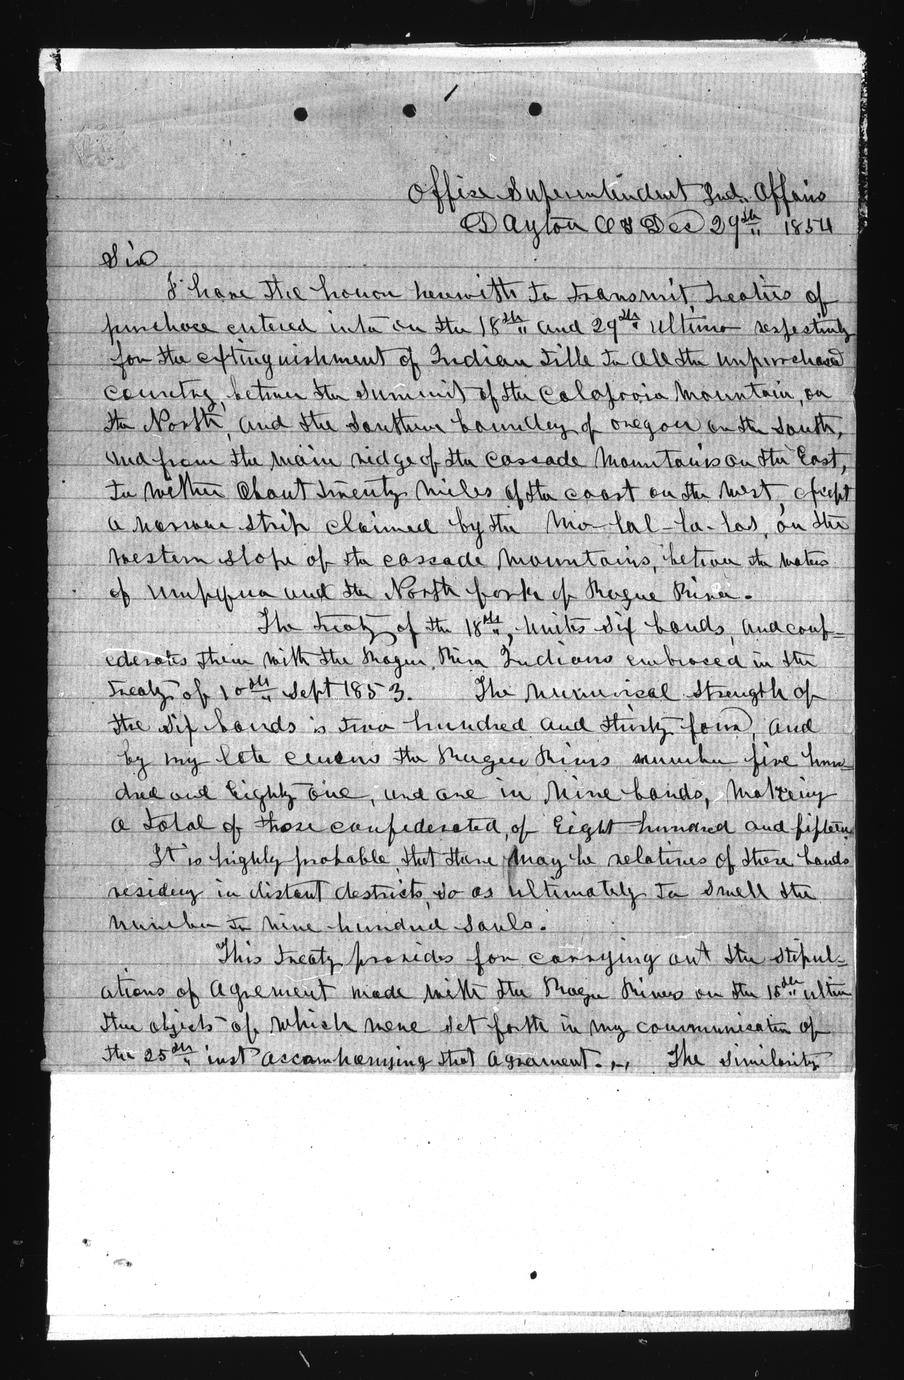 Office Superintendent Ind. Affairs
Dayton O T Dec 29th 1854
Sir
I have the honor herewith to transmit, treaties of
purchase entered into on the 18th and 29th ultimo respectively
for the extinguishment of Indian title to all the unpurchased
country, between the summit of the Calapooia Mountain, on
the North, and the Southern boundry of oregon on the South,
and from the main ridge of the cascade Mountains on the East,
to within about twenty miles of the coast on the west, except
a narrow strip claimed by the Mo-lal-la-las, on the
western slope of the cascade Mountains, betwen the waters
of Umpqua and the North fork of Rogue River.
The treaty of the 18th, unites six bands, and conf=
ederates them with the Rogue River Indians embraced in the
treaty of 10th Sept 1853. The numerical strength of
the six bands is two hundred and thirty four, and
by my late census the Rogue Rivers number five hun=
dred and Eighty one, and are in Nine bands, Making
a total of those confederated, of Eight hundred and fifteen
It is highly probable that there may be relatives of these bands
residing in distant destricts, so as ultimately to swell the
number to nine hundred souls.
This treaty provides for carrying out the stipul=
ations of agreement made with the Rogue Rivers on the 15th ultimo
the objects of which were set forth in my communication of
the 25th inst accompanying that agreement. The similarity